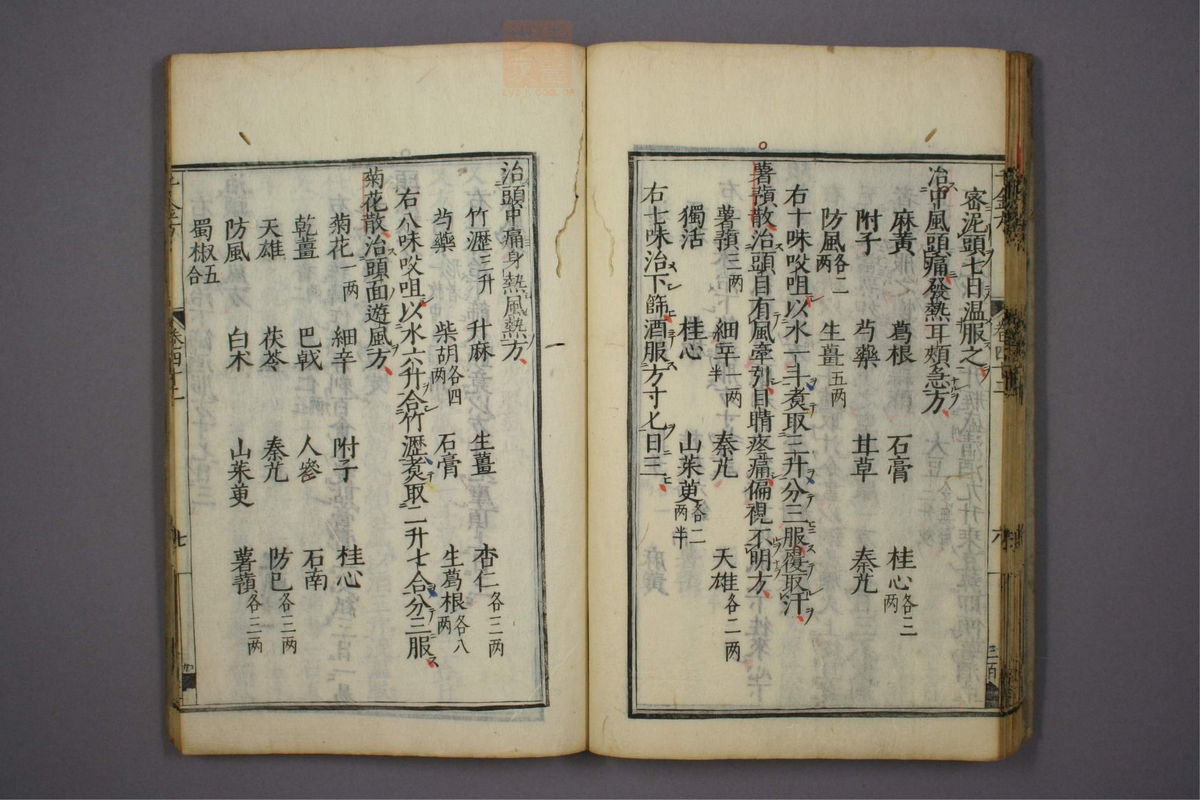 密泥頭七日温服之
治中風頭痛發熱耳頰急方
麻黄 葛根 石膏 桂心各三两
附子 芍藥 甘草 秦艽
防風各二两 生薑五两
右十味㕮咀以水一斗煮取三升分三服覆取汗
薯蕷散治頭目有風牽引目睛疼痛偏視不明方
薯蕷三两 細辛一两半 秦艽 天雄各二两
獨活 桂心 山茱萸各二两半
右七味治下篩酒服方寸匕日三
治頭中痛身熱風熱方
竹瀝三升 升麻 生薑 杏仁各三两
芍藥 柴胡各四两 石膏 生葛根各八两
右八味㕮咀以水六升合竹瀝煮取二升七合分三服
菊花散治頭面遊風方
菊花一两 細辛 附子 桂心
乾薑 巴戟 人參 石南
天雄 茯苓 秦艽 防己各三两
防風 白朮 山茱萸 薯蕷各三两
蜀椒五合